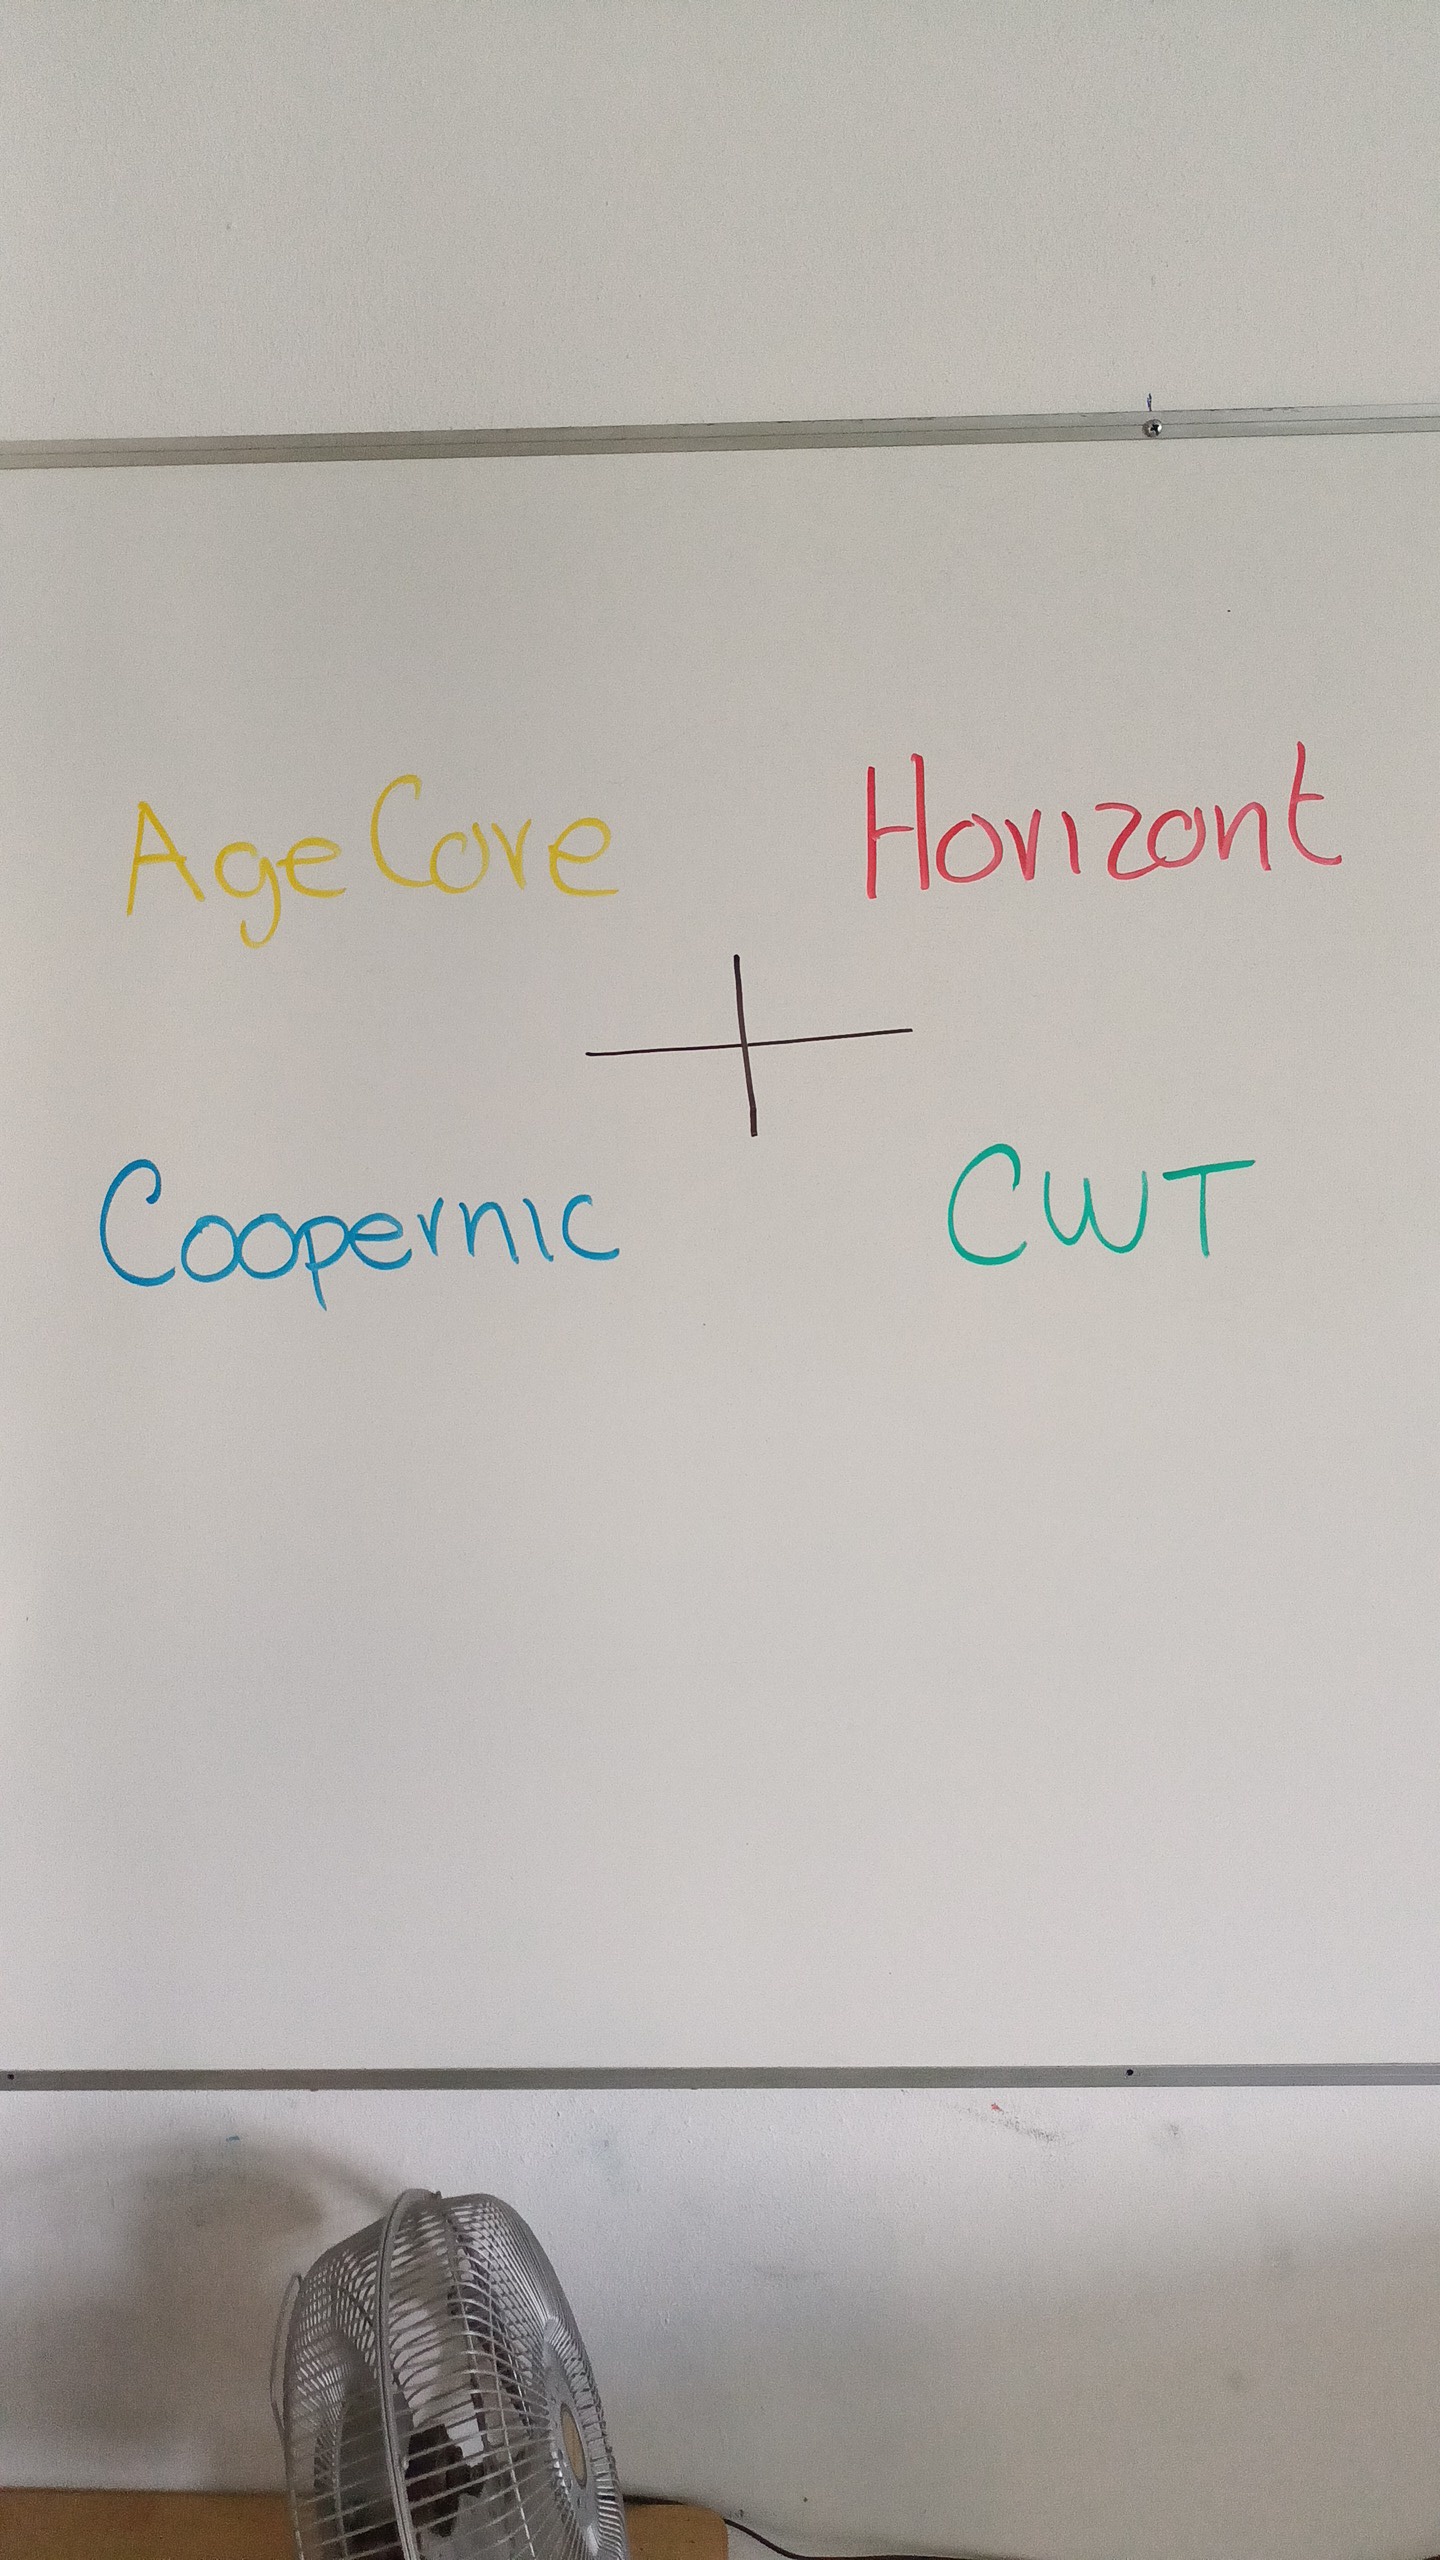 AgeCore Horizont
Coopernic CWT